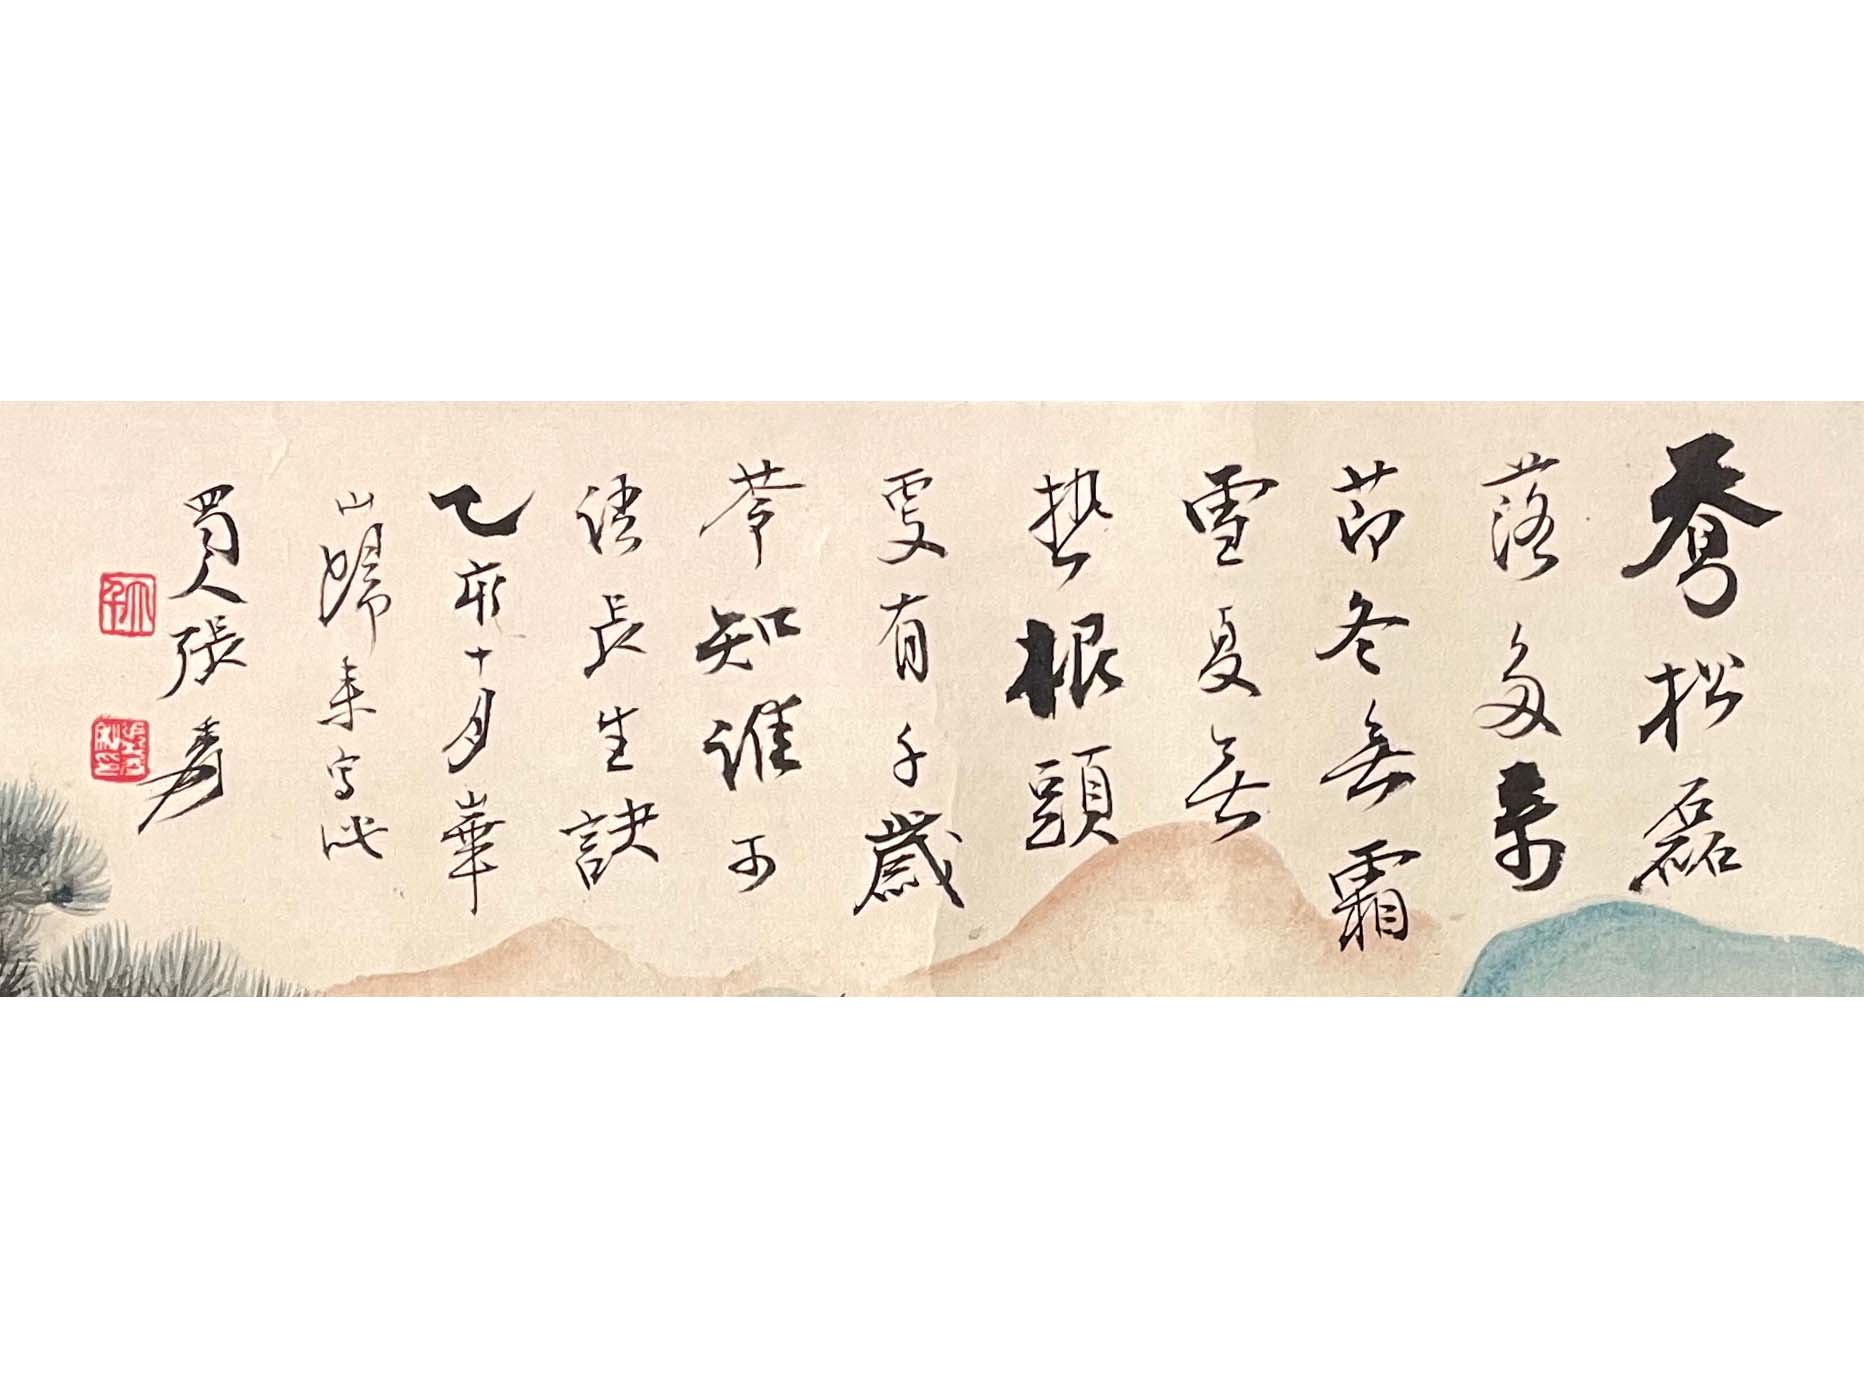 喬松磊
落多奇
節冬無霜
雪夏無
熱根頭
更有千歲
苓知誰可
語長生訣
乙亥十月華
山歸來寫此
蜀人張爰
大千